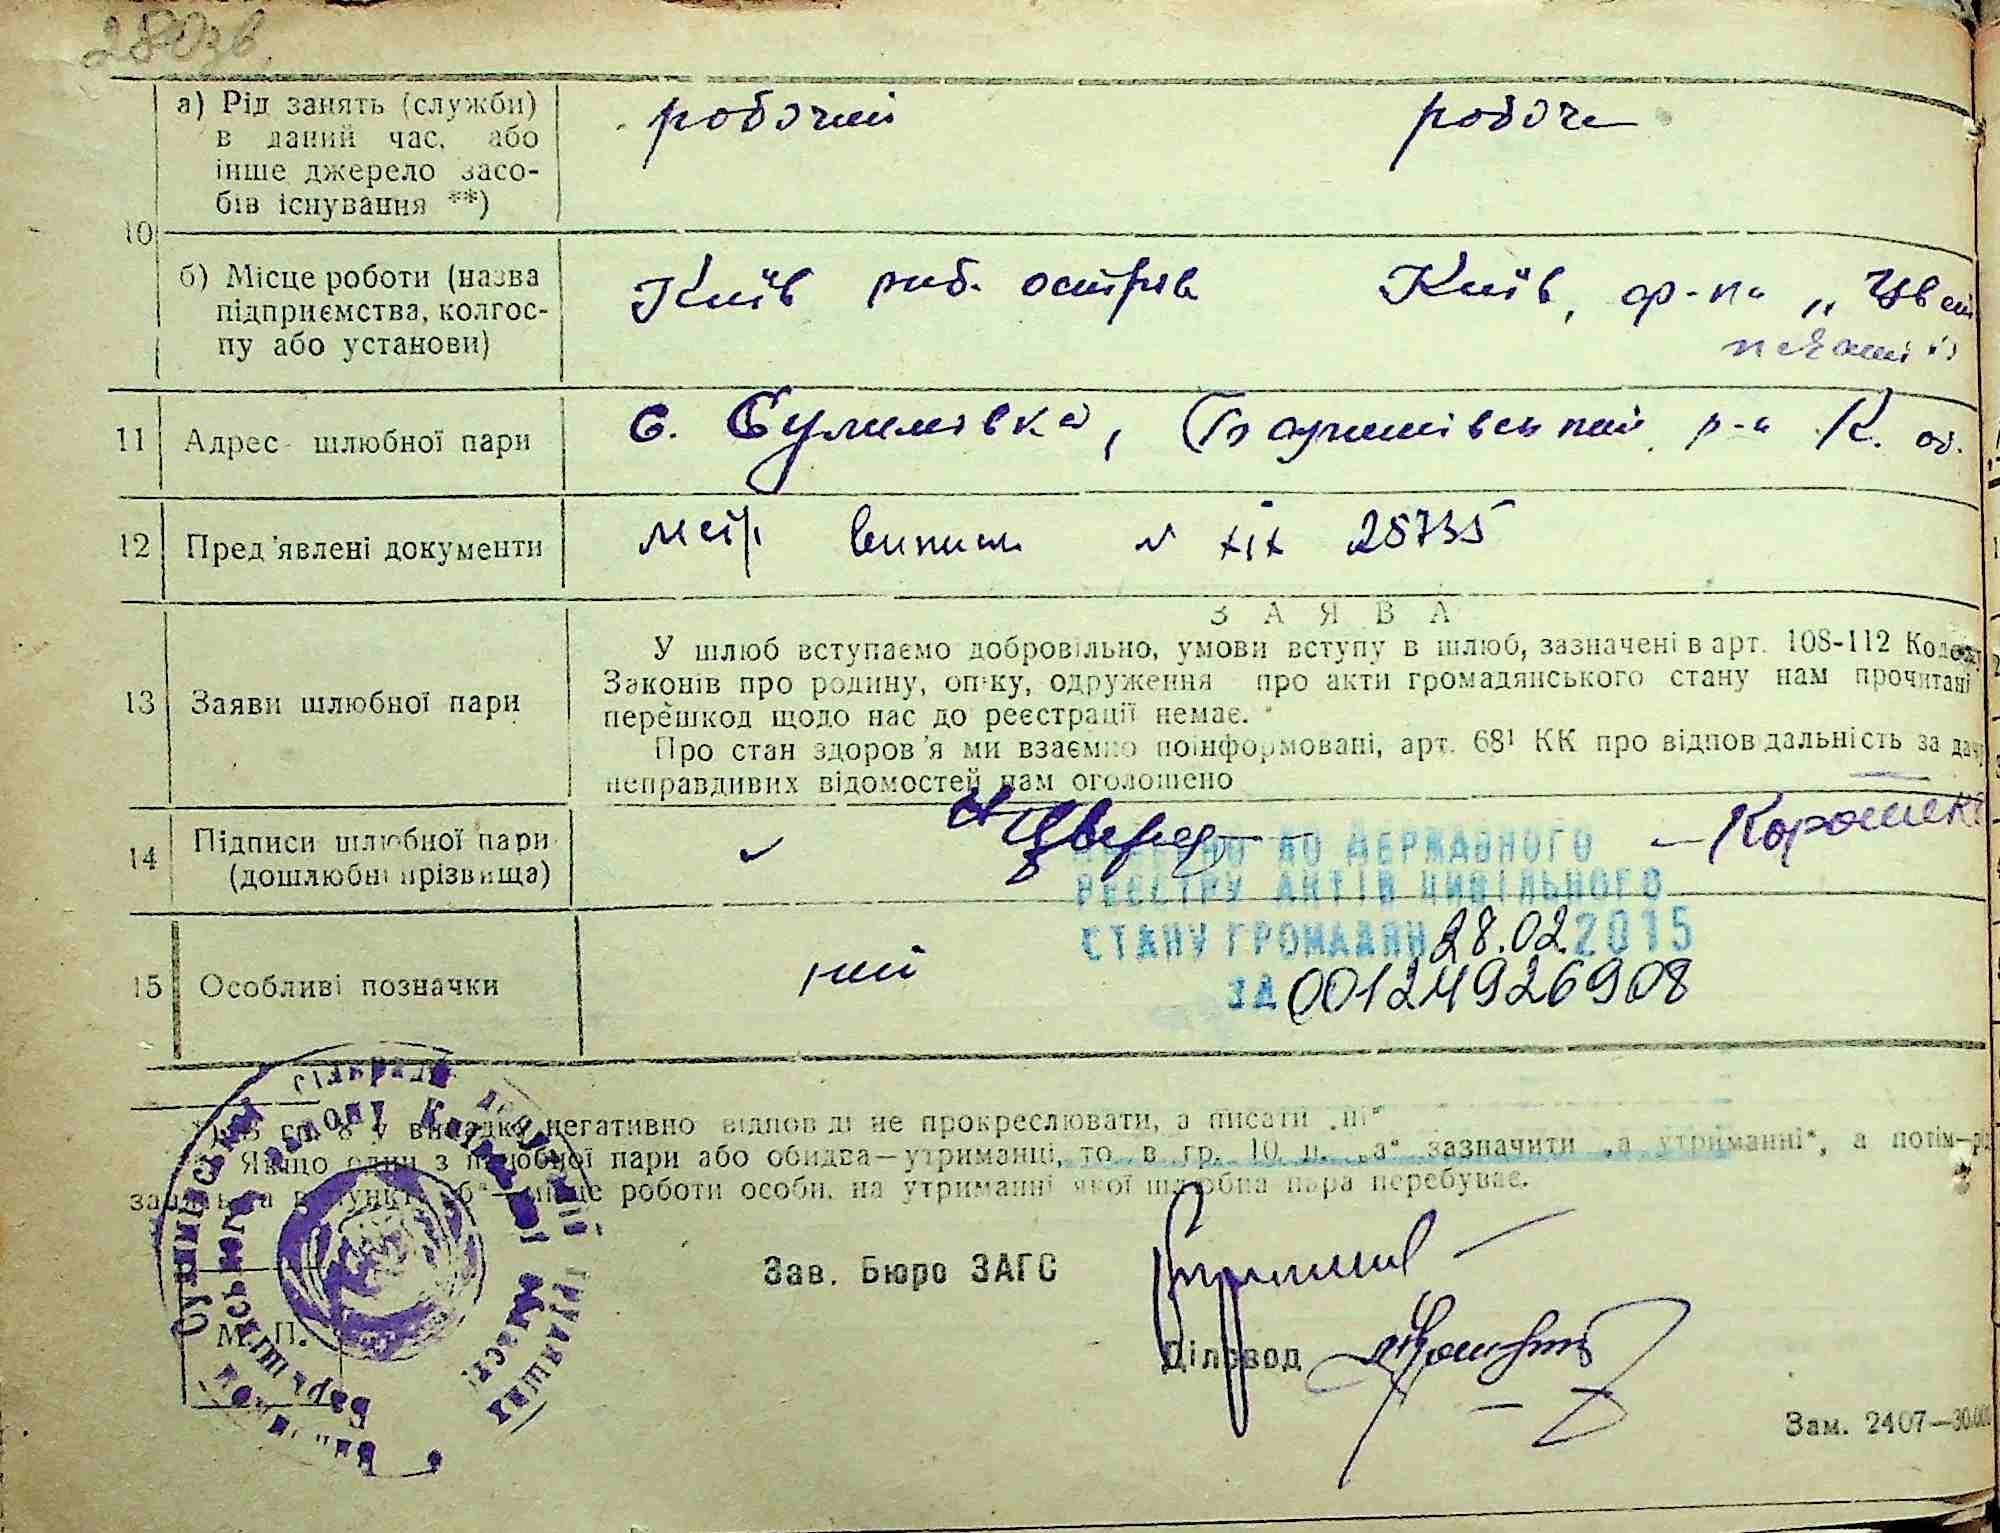 280зв.
а) Рід занять (служби)
в даний час, або
інше джерело засо-
бів існування **)
робочий робоч
10
б) Місце роботи (назва
підприємства, колгос-
пу або установи)
Київ риб. острів Київ, ф-ка „
11 Адрес шлюбної пари
с. Сулимівка, Баришівський р-н К. об.
12 Пред'явлені документи
метр випис № 25735
ЗАЯВА
13 Заяви шлюбної пари
У шлюб вступаємо добровільно, умови вступу в шлюб, зазначені в арт. 108-112 Кодексу
Законів про родину, опіку, одруження про акти громадянського стану нам прочитані
перешкод щодо нас до реєстрації немає.
Про стан здоров'я ми взаємно поінформовані, арт. 68¹ КК про відповідальність за дачу
неправдивих відомостей нам оголошено
14 Підписи шлюбної пари
(дошлюбні прізвища)
ДО ДЕРЖАВНОГО
РЕЄСТРУ АКТІВ ЦИВІЛЬНОГО
СТАНУ ГРОМАДЯН 28.02.2015
ЗА 00124926908
15 Особливі позначки
ний
гр. 8 у випадку негативно відповіді не прокреслювати, а писати „ні"
Якщо один з шлюбної пари або обидва—утриманці, то в гр. 10 п. „а" зазначити „а утриманні", а потім
в пункті „б"—місце роботи особи, на утриманні якої шлюбна пара перебуває.
Зав. Бюро ЗАГС
М. П.
Діловод
Зам. 2407—30.000